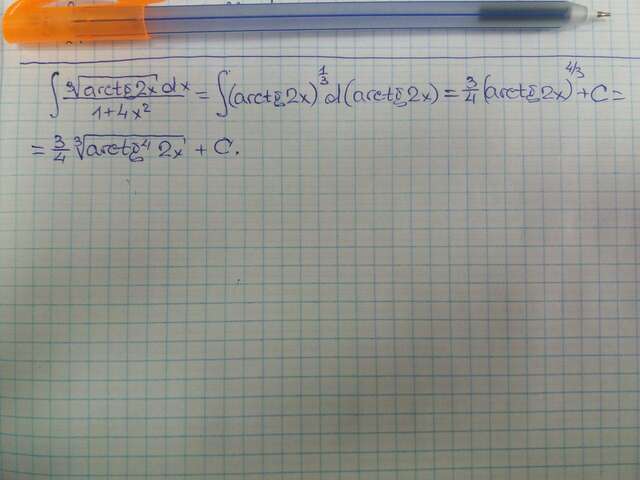 ∫ ∛(arctg 2x) dx / (1+4x²) = ∫ (arctg 2x)^(1/3) d(arctg 2x) = 3/4 (arctg 2x)^(4/3) + C =
= 3/4 ∛(arctg⁴ 2x) + C.